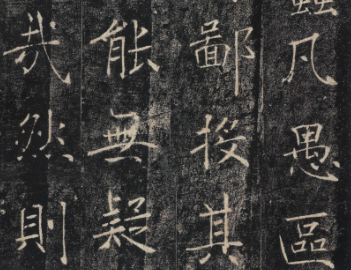 凡愚區
鄙投其
能無疑
哉然則